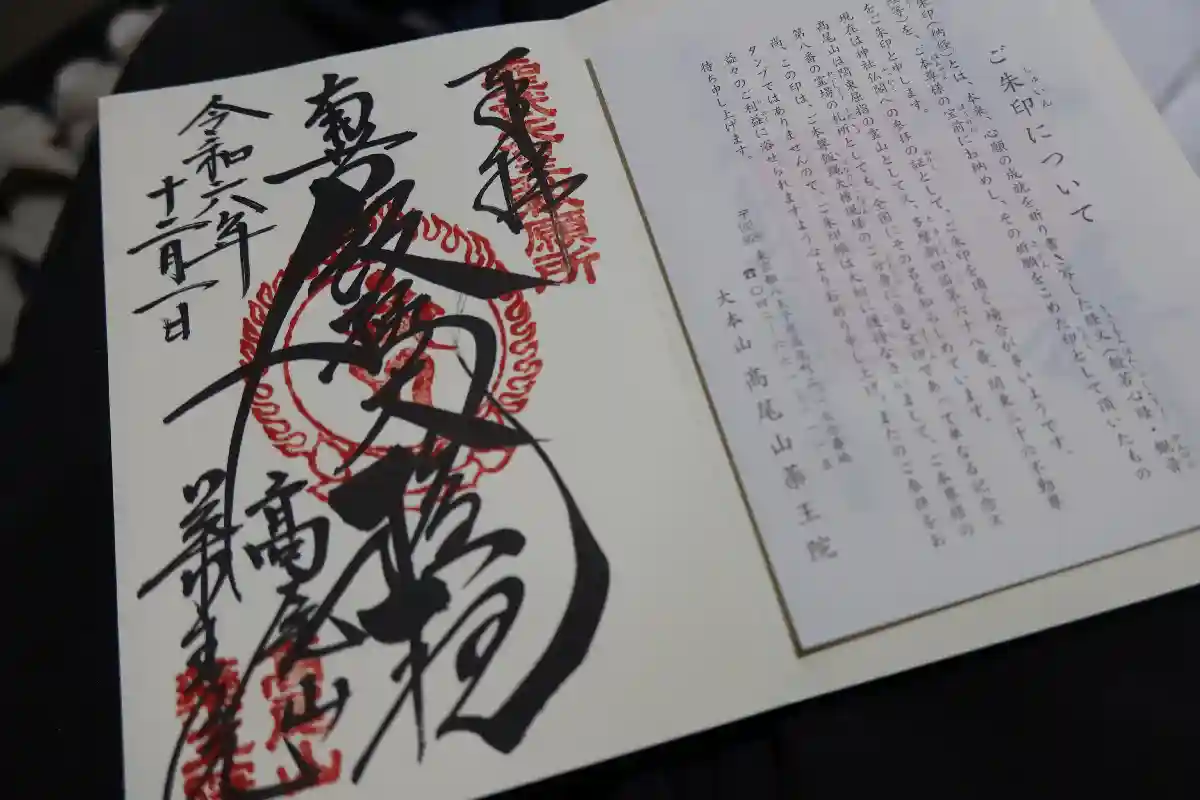 ご朱印について
朱印(納経)とは、本来、心願の成就を祈り書き写した経文(般若心経・観音
経等)を、ご本尊様の宝前にお納めし、その祈願をこめた印として頂いたもの
をご朱印と申します。
現在は神社仏閣への参拝の証として、ご朱印を頂く場合が多いようです。
高尾山は関東屈指の霊山として又、多摩新四国第六十八番、関東三十六不動尊
第八番の霊場の札所としても、全国にその名を知らしめています。
尚、この印は、ご本尊飯縄大権現様のご分身に当る宝印であって単なる記念ス
タンプではありませんので、ご朱印帳は大切に護持なさいまして、ご本尊様の
益々のご利益に浴せられますよう心よりお祈り申し上げ、またのご参詣をお
待ち申し上げます。
大本山 高尾山薬王院
奉拝
願所
飯縄大権現
高尾山
薬王院
令和六年
十二月一日